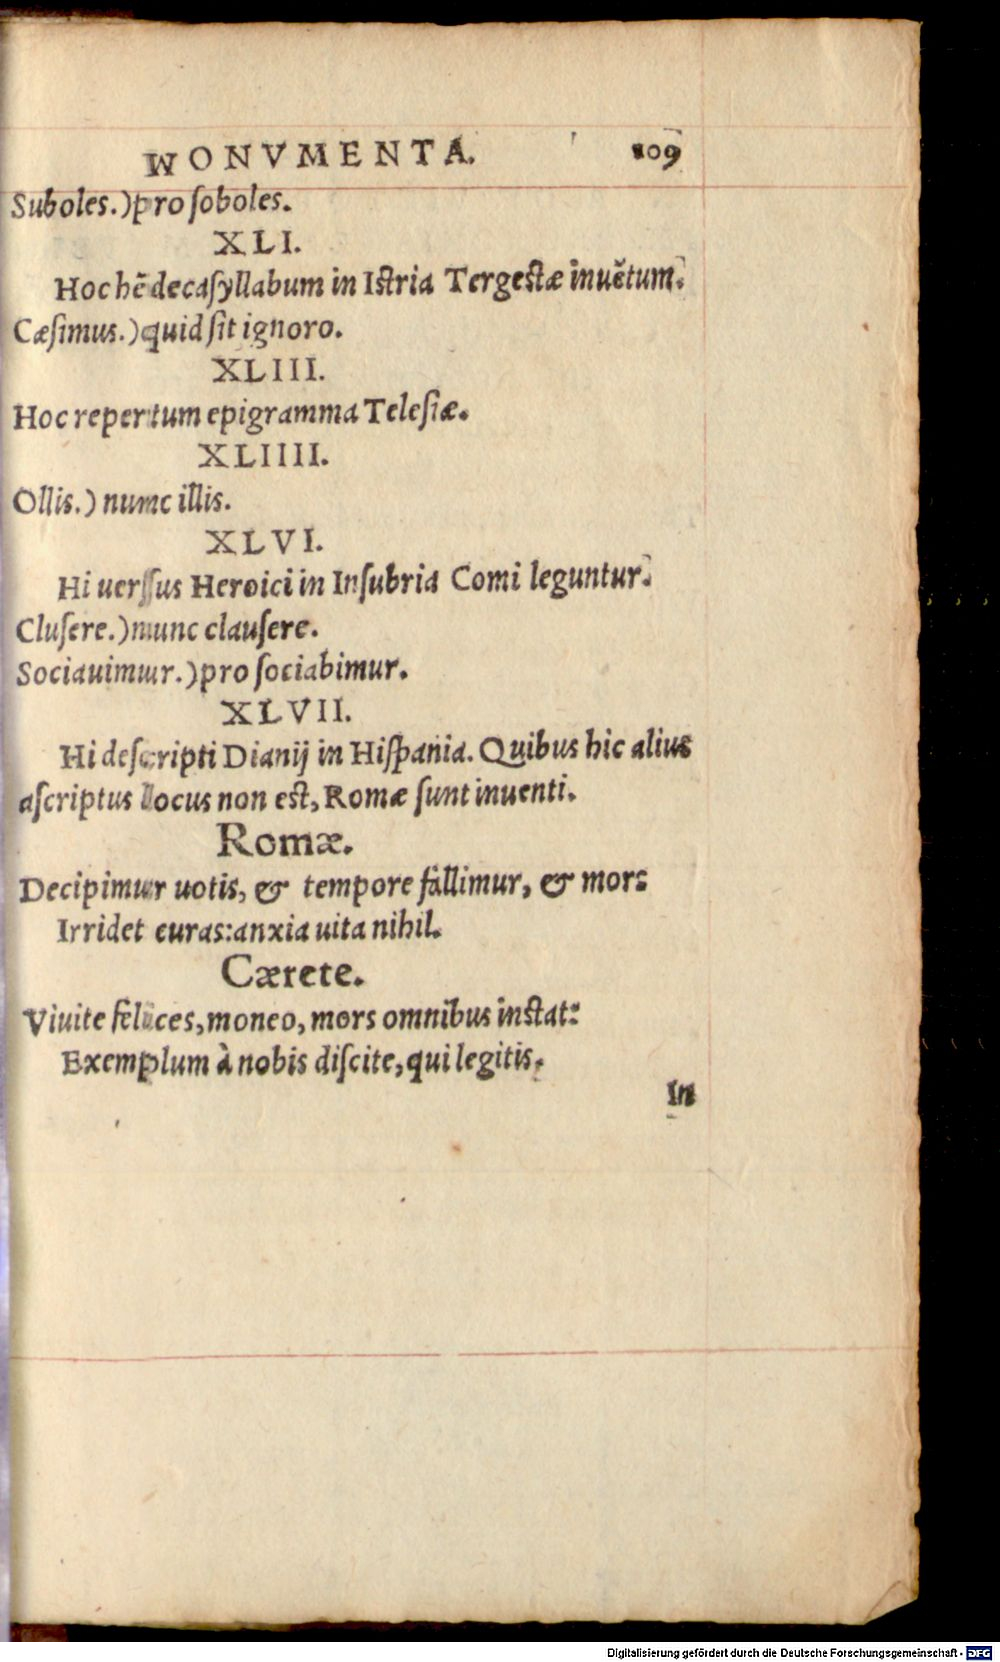 MONVMENTA. 109
Suboles.) pro ſoboles.
XLI.
Hoc hēdecaſyllabum in Istria Tergestæ inuētum.
Cæſimus.) quid ſit ignoro.
XLIII.
Hoc repertum epigramma Teleſiæ.
XLIIII.
Ollis.) nunc illis.
XLVI.
Hi uerſus Heroici in Inſubria Comi leguntur.
Cluſere.) nunc clauſere.
Sociauimur.) pro ſociabimur.
XLVII.
Hi deſcripti Dianij in Hiſpania. Quibus hic alius
aſcriptus locus non est, Romæ ſunt inuenti.
Romæ.
Decipimur uotis, & tempore fallimur, & mors
Irridet curas: anxia uita nihil.
Cærete.
Viuite felices, moneo, mors omnibus instat:
Exemplum à nobis diſcite, qui legitis.
In
Digitalisierung gefördert durch die Deutsche Forschungsgemeinschaft - DFG